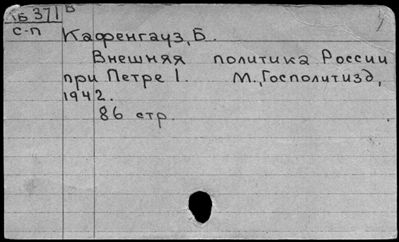 КБ 371 В
С-П
Кафенгауз, Б.
Внешняя политика России
при Петре I. М., Госполитизд,
1942.
86 стр.